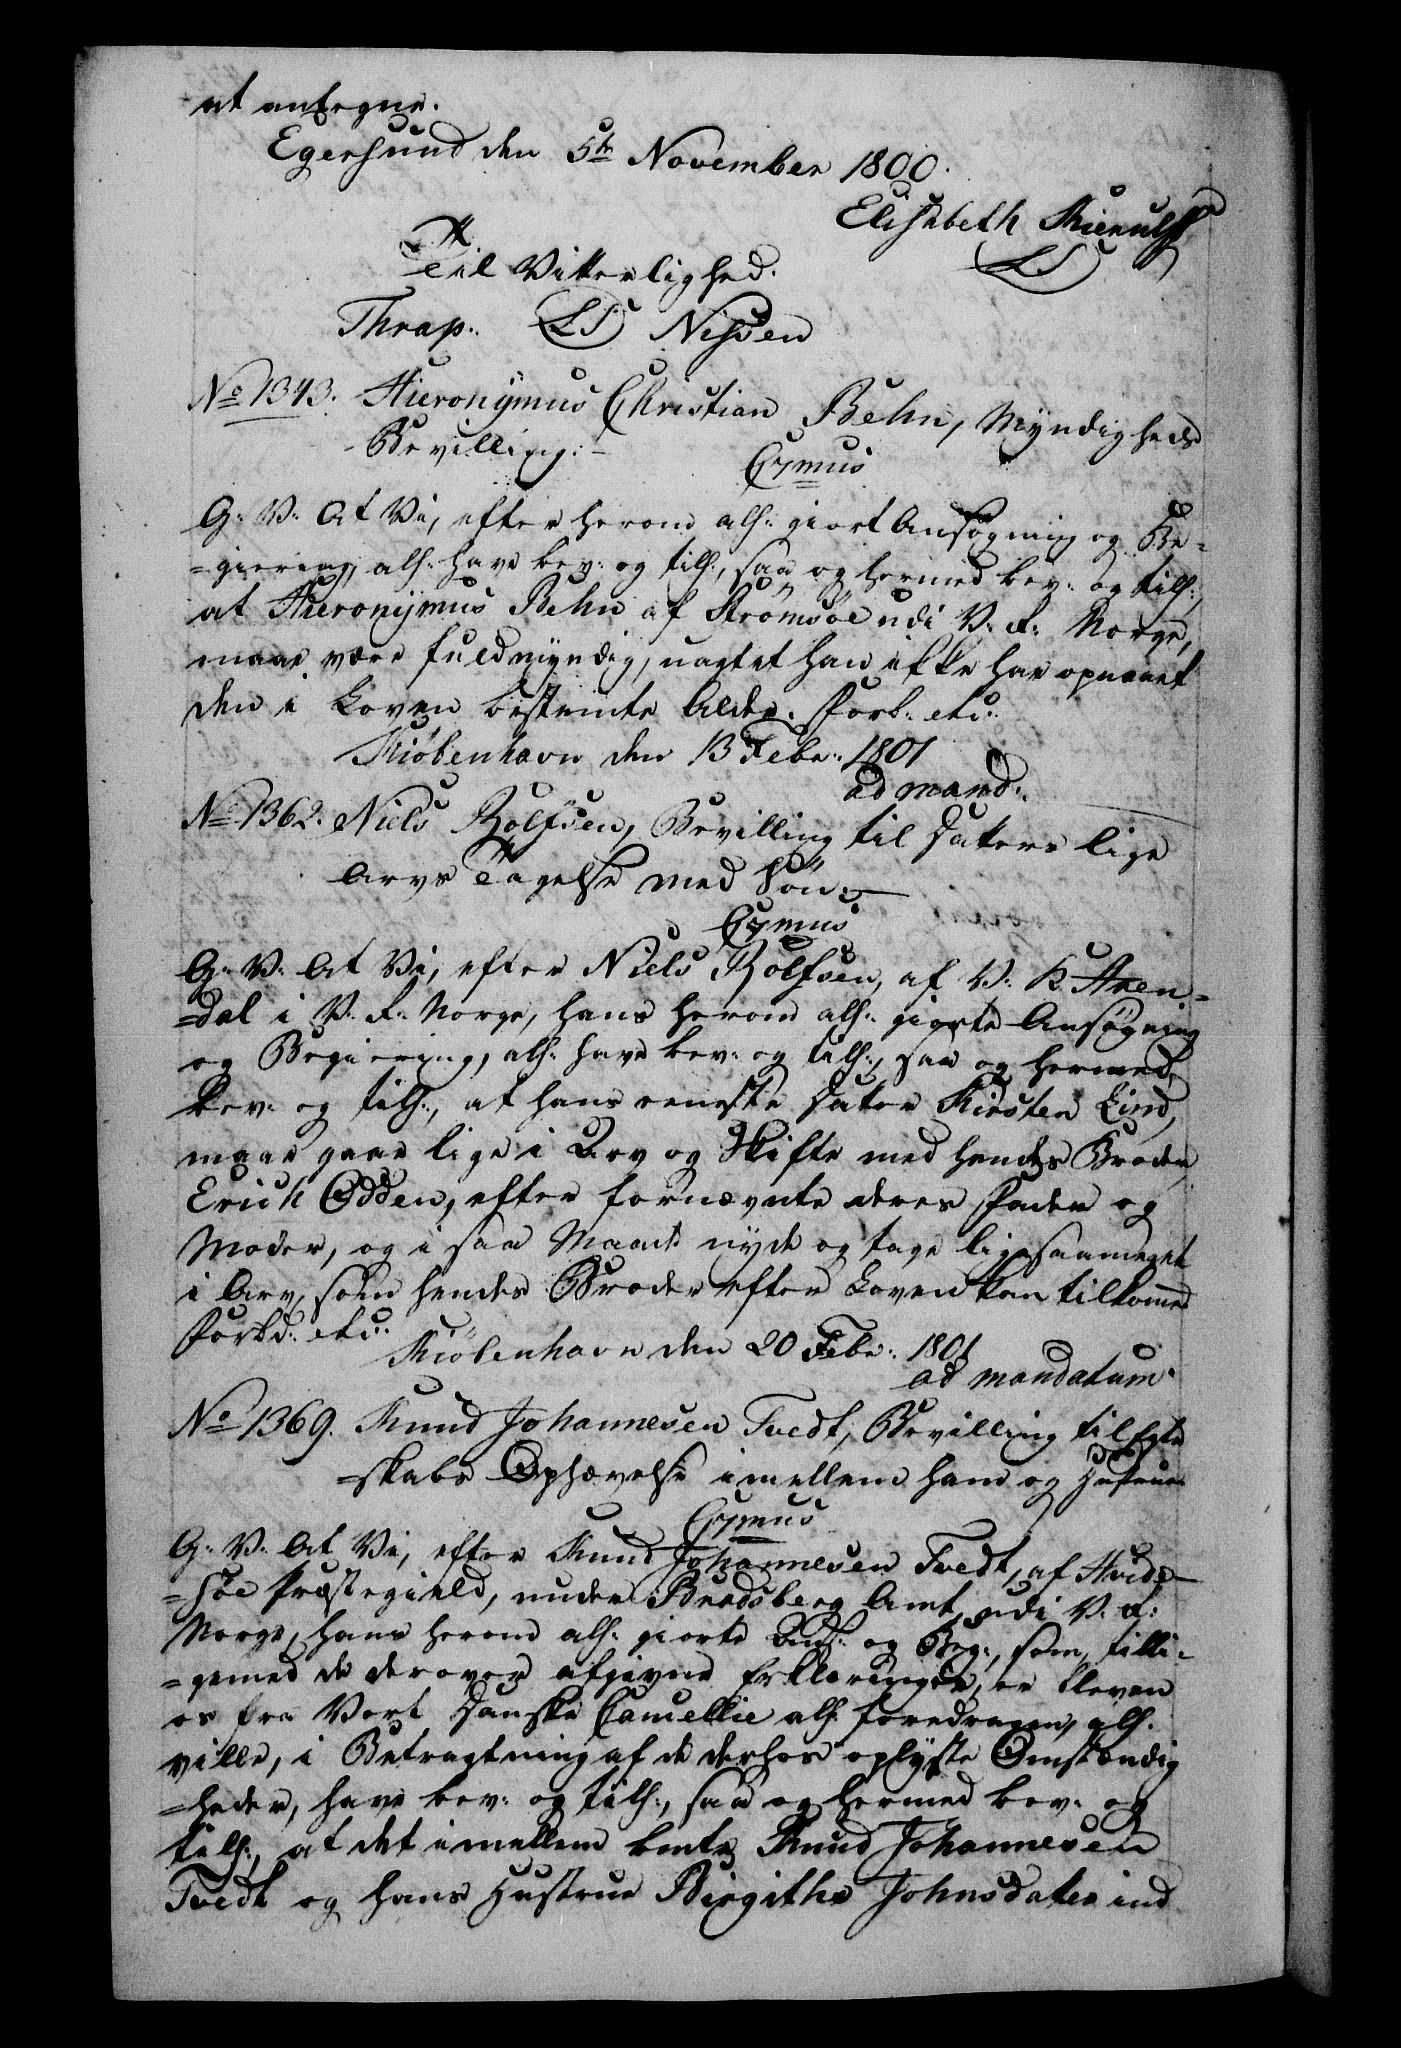 at antegne.
Egersund den 5te November 1800.
Elisabeth Kierulff
LS
Til Vitterlighed.
Thrap. LS Nissen
No 1343. Hieronÿmus Christian Behn, Mÿndigheds
Bevilling:
C7mus
G: V: At Vi, efter herom als: giort Ansøgning og Be-
=giering, als: have bev: og till:, saa og hermed bev: og till:,
at Hieronÿmus Behn af Strømsøe udi V: R: Norge,
maae være fuldmÿndig, uagtet han ikke har opnaaet
den i Loven bestemte Alder. Forb: etc:
Kiøbenhavn den 13 Febr: 1801
ad mand:
No 1362. Niels Rolfsen, Bevilling til Daters lige
Arvs Tagelse med Søn:
C7mus
G: V: At Vi, efter Niels Rolfsen, af V: K: Aren-
=dal i V: R: Norge, hans herom als: giorte Ansøgning
og Begiering, als: have bev: og till:, saa og hermed
bev: og till:, at hans eneste Dater Kirsten Lind,
maae gaae lige i Arv og Skifte med hendes Broder,
Erich Odden, efter fornævnte deres Fader og
Moder, og i saa Maade nÿde og tage ligesaameget
i Arv, som hendes Broder efter Loven kan tilkomme
Forbd: etc:
Kiøbenhavn den 20 Febr: 1801
ad mandatum
No 1369. Knud Johannesen Tvedt, Bevilling til Egte
=skabs Ophævelse imellem ham og Hustrue
C7mus
G: V: At Vi, efter Knud Johannesen Tvedt, af Hvide-
=søe Præstegield, under Bradsberg Amt, udi V: R:
Norge, hans herom als: giorte Ans: og Beg:, som, tilli-
=gemed de derover afgivne Erklæringer, er bleven
os fra Vort Danske Cancellie als: foredragen, als:
ville, i Betragtning af de derhos oplÿste Omstændig
=heder, have bev: og till:, saa og hermed bev: og
till:, at det imellem bemte Knud Johannesen
Tvedt og hans Hustrue Birgithe Johnsdater ind